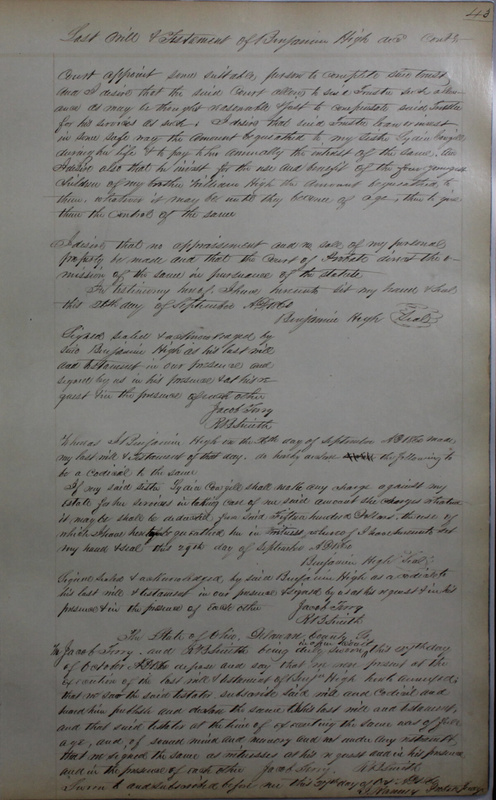 43
Last Will & Testament of Benjamin High decd Contd
Court appoint some suitable person to complete said trust
and I desire that the said Court allow to said Trustee such allow-
ance as may be thought reasonable & just to compensate said Trustee
for his services as such. I desire that said Trustee loan or invest
in some safe way the amount bequeathed to my sister Lydia Cowgill
during her life & to pay to her annually the interest of the same, the
Trustee also that he invest for the use and benefit of the four youngest
children of my brother William High the amount bequeathed to
them, whatever it may be until they become of age, then to give
them the control of the same
I desire that no appraisement and no sale of my personal
property be made and that the Court of Probate direct the o-
mission of the same in pursuance of the statute.
In testimony hereof, I have hereunto set my hand & seal
this 28th day of September AD
Benjamin High Seal
Signed sealed & acknowledged by
said Benjamin High as his last will
and testament in our presence and
signed by us in his presence & at his re-
quest & in the presence of each other
Jacob Terry
R B Smith
Whereas I Benjamin High on the 28th day of September AD made
my last will & testament of that day. do hereby the following to
be a codicial to the same
If my said sister Lydia Cowgill shall make any charge against my
estate for her services in taking care of me said amount she charges whatever
it may be shall be deducted from said Fifteen hundred Dollars, the use of
which I have bequeathed her in witness whereof I have hereunto set
my hand & seal this 29th day of September AD
Benjamin High Seal
Signed sealed & acknowledged by said Benjamin High as a codicial to
his last will & testament in our presence & signed by us at his request & in his
presence & in the presence of each other Jacob Terry
R B Smith
The State of Ohio, Delaware County Ss
We Jacob Terry and R B Smith being duly sworn in open court this day
of October AD depose and say that we were present at the
execution of the last will & testament of Benjn High hereto annexed,
that we saw the said testator subscribe said will and Codicial and
heard him publish and declare the same as his last will and testament,
and that said testator at the time of executing the same was of full
age, and, of sound mind and memory and not under any restraint,
that we signed the same as witnesses at his request and in his presence
and in the presence of each other Jacob Terry. R B Smith
Sworn to and subscribed before me this day of Oct. AD
Probate Judge